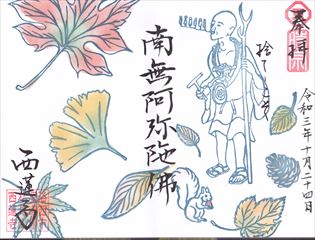 奉拝
令和三年十月二十四日
捨てゝこそ
南無阿弥陀佛
西蓮寺